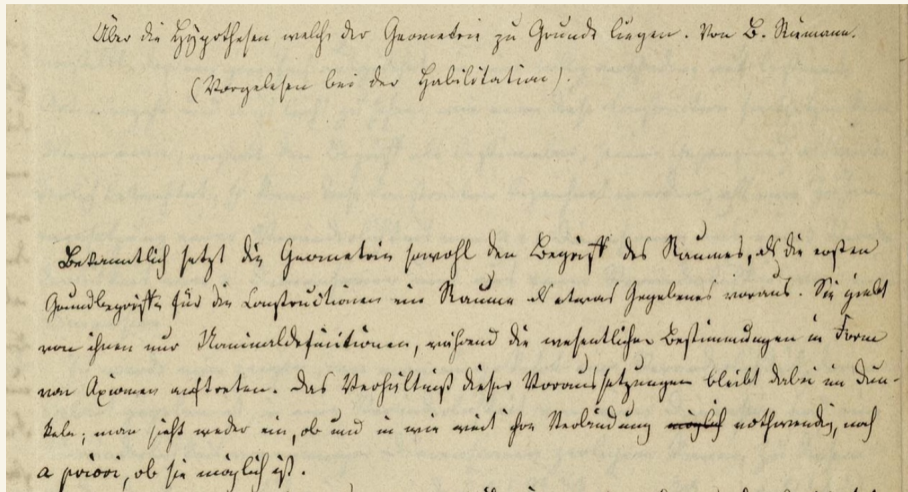 Über die Hypothesen welche der Geometrie zu Grunde liegen. Von B. Riemann.
(Vorgelesen bei der Habilitation).
Bekanntlich setzt die Geometrie sowohl den Begriff des Raumes, als die ersten
Grundbegriffe für die Constructionen im Raume als etwas Gegebenes voraus. Sie giebt
von ihnen nur Nominaldefinitionen, während die wesentlichen Bestimmungen in Form
von Axiomen auftreten. Das Verhältniß dieser Voraussetzungen bleibt dabei im Dun-
keln; man sieht weder ein, ob und in wie weit ihre Verbindung möglich nothwendig, noch
a priori, ob sie möglich ist.